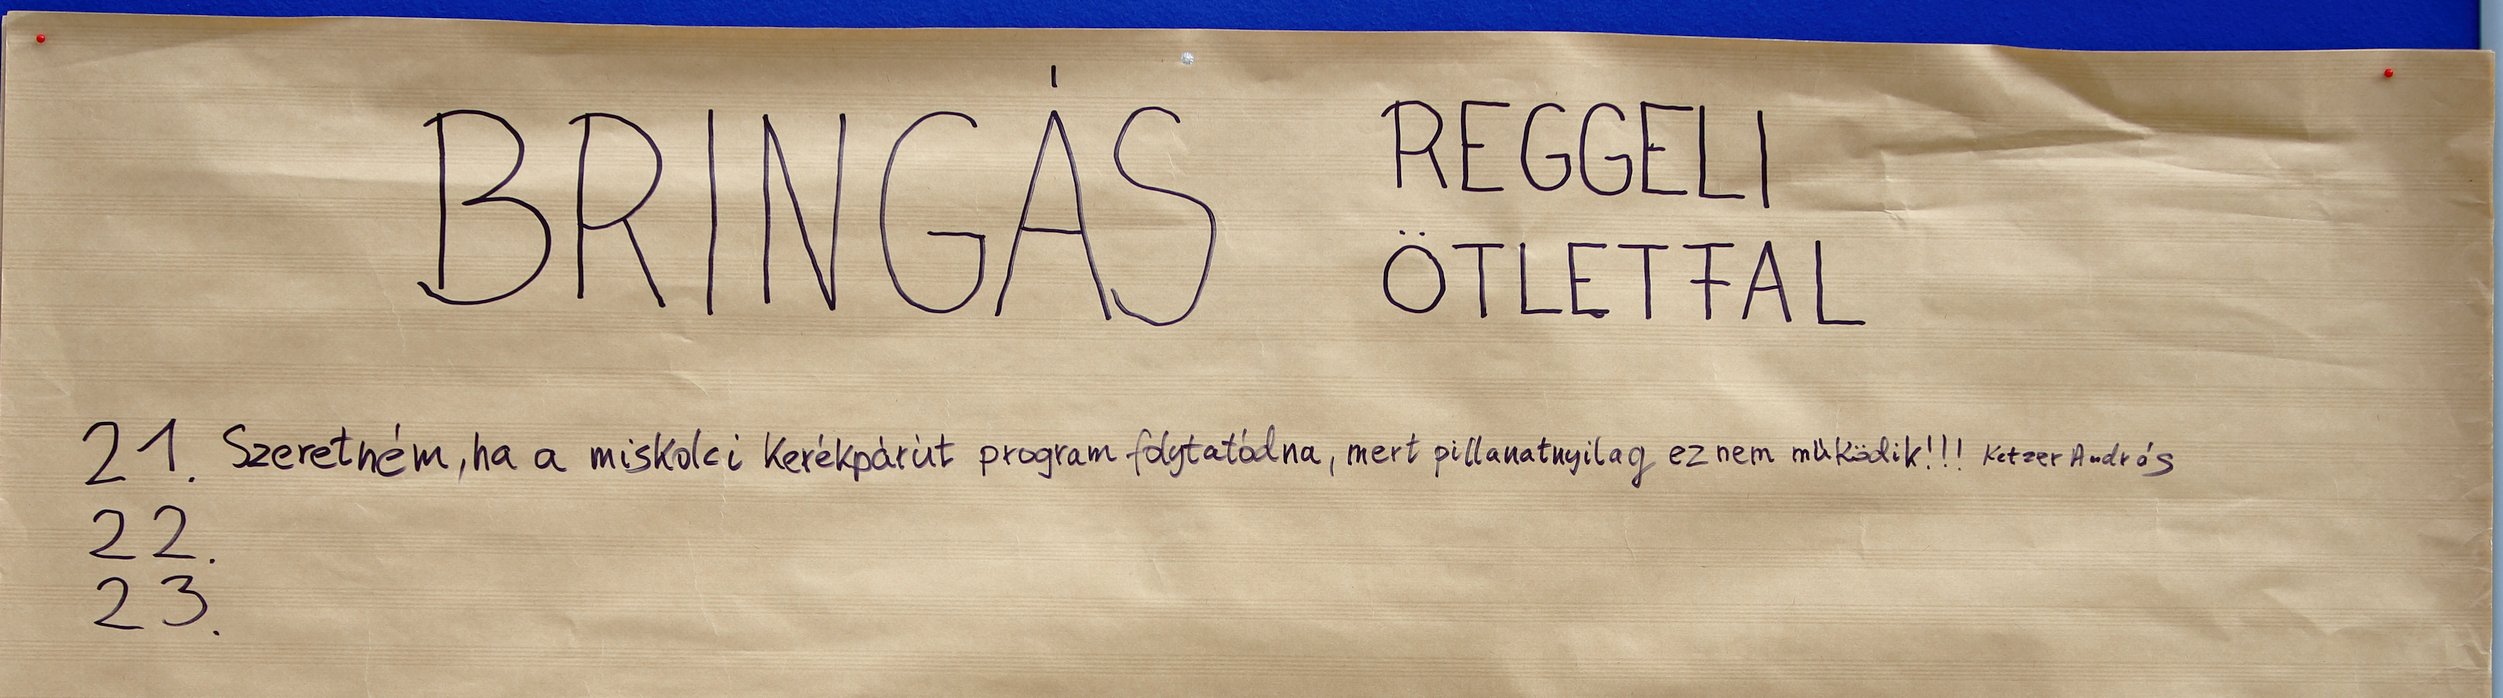 BRINGÁS REGGELI
ÖTLETFAL
21. Szeretném, ha a miskolci kerékpárút program folytatódna, mert pillanatnyilag ez nem működik!!! Ketzer András
22.
23.